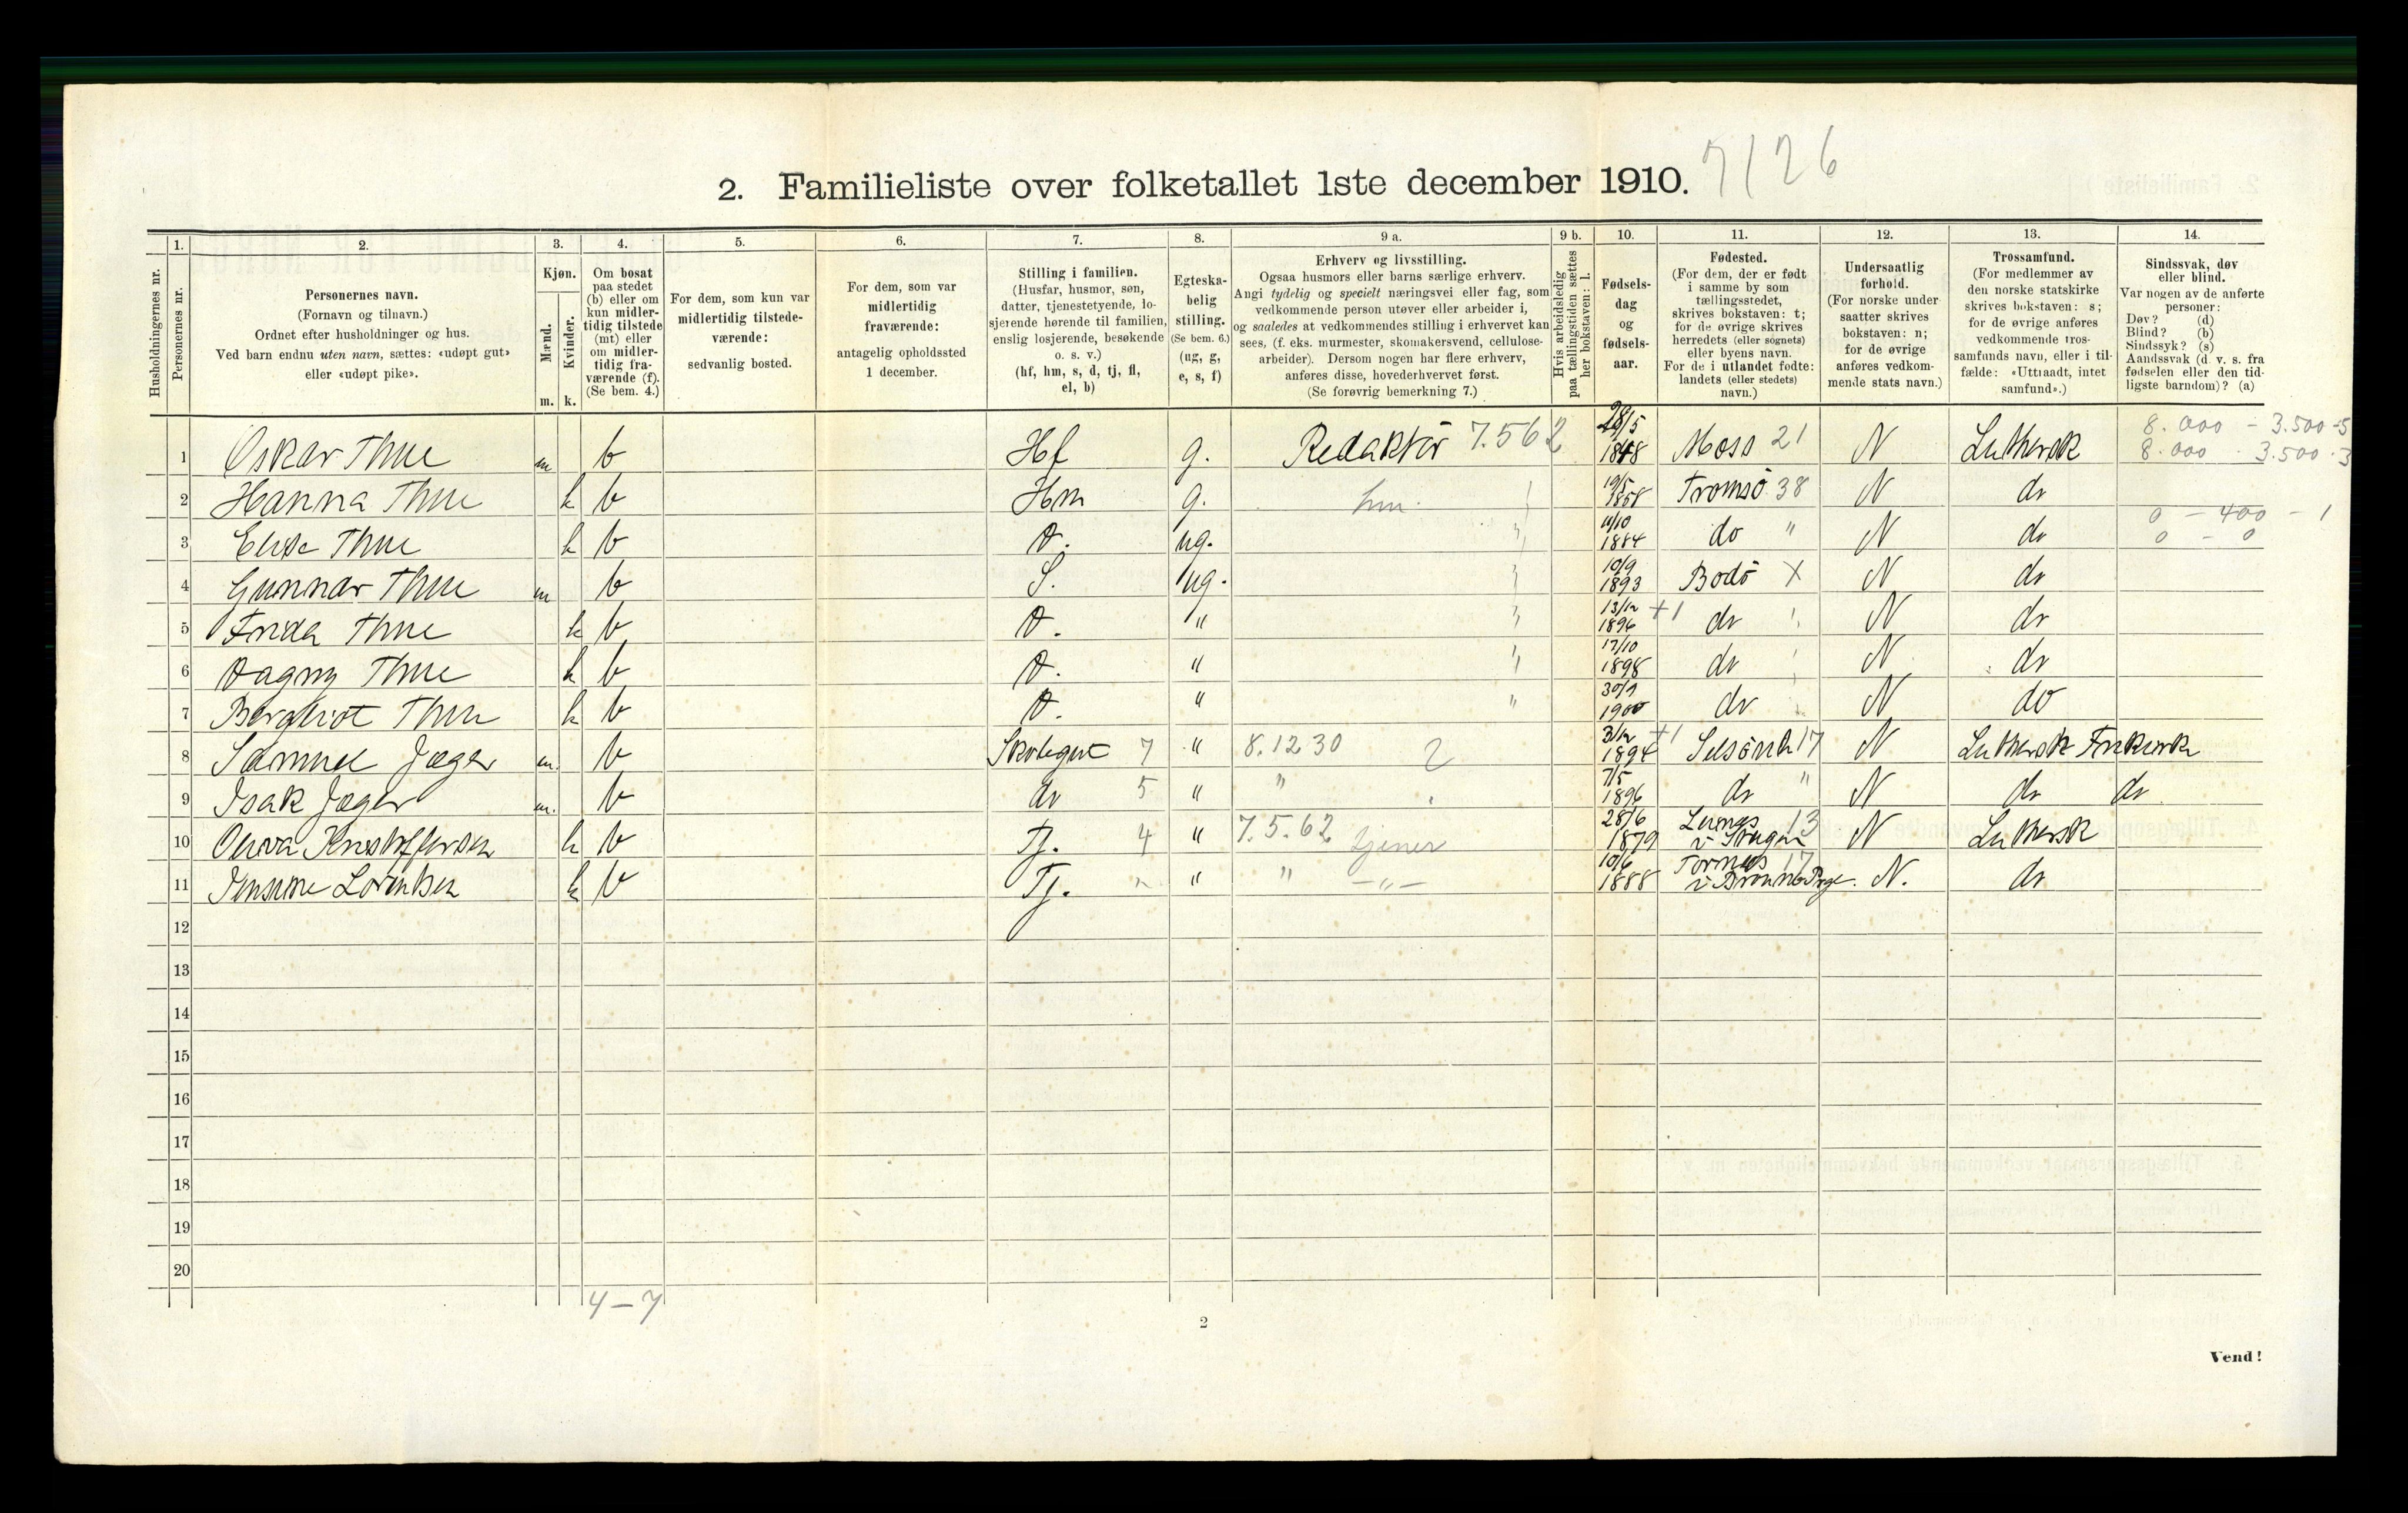 2. Familieliste over folketallet 1ste december 1910. 7/26
Husholdningernes nr.
1. Personernes nr.
2. Personernes navn.
(Fornavn og tilnavn.)
Ordnet efter husholdninger og hus.
Ved barn endnu uten navn, sættes: «udøpt gut»
eller «udøpt pike».
3. Kjøn.
Mænd. m.
Kvinder. k.
4. Om bosat
paa stedet
(b) eller om
kun midler-
tidig tilstede
(mt) eller
om midler-
tidig fra-
værende (f).
(Se bem. 4.)
5. For dem, som kun var
midlertidig tilstede-
værende:
sedvanlig bosted.
6. For dem, som var
midlertidig
fraværende:
antagelig opholdssted
1 december.
7. Stilling i familien.
(Husfar, husmor, søn,
datter, tjenestetyende, lo-
sjerende hørende til familien,
enslig losjerende, besøkende
o. s. v.)
(hf, hm, s, d, tj, fl,
el, b)
8. Egteska-
belig
stilling.
(Se bem. 6.)
(ug, g,
e, s, f)
9 a. Erhverv og livsstilling.
Ogsaa husmors eller barns særlige erhverv.
Angi tydelig og specielt næringsvei eller fag, som
vedkommende person utøver eller arbeider i,
og saaledes at vedkommendes stilling i erhvervet kan
sees, (f. eks. murmester, skomakersvend, cellulose-
arbeider). Dersom nogen har flere erhverv,
anføres disse, hovederhvervet først.
(Se forøvrig bemerkning 7.)
9 b. Hvis arbeidsledig
paa tællingstiden sættes
her bokstaven: l.
10. Fødsels-
dag
og
fødsels-
aar.
11. Fødested.
(For dem, der er født
i samme by som
tællingsstedet,
skrives bokstaven: t;
for de øvrige skrives
herredets (eller sognets)
eller byens navn.
For de i utlandet fødte:
landets (eller stedets)
navn.)
12. Undersaatlig
forhold.
(For norske under-
saatter skrives
bokstaven: n;
for de øvrige
anføres vedkom-
mende stats navn.)
13. Trossamfund.
(For medlemmer av
den norske statskirke
skrives bokstaven: s;
for de øvrige anføres
vedkommende tros-
samfunds navn, eller i til-
fælde: «Uttraadt, intet
samfund».)
14. Sindssvak, døv
eller blind.
Var nogen av de anførte
personer:
Døv? (d)
Blind? (b)
Sindssyk? (s)
Aandssvak (d. v. s. fra
fødselen eller den tid-
ligste barndom)? (a)
1 Oskar Thue m b Hf g. Redaktör 7.562 28/5 1848 Moss 21 N Luthersk 8.000 - 3.500 - 5
8.000 - 3.500 - 3
2 Hanna Thue k b Hm g. hm. 19/5 1858 Tromsö 38 N do
3 Elise Thue k b D. ug. " 11/10 1884 do " N do 0 - 400 - 1
0 - 0
4 Gunnar Thue m b S. ug. " 10/9 1893 Bodö X N do
5 Frida Thue k b D. " " 13/12 1896 +1 do " N do
6 Dagny Thue k b D. " " 17/10 1898 do " N do
7 Bergliot Thue k b D. " " 30/9 1900 do " N do
8 Samuel Jæger m. b Skolegut 7 " 8.12.30 2 3/12 1894 +1 17 N Luthersk Frikirk
9 Isak Jæger m. b do 5 " " 7/5 1896 do " N do do
10 Kristoffersen k b Tj. 4 " 7.5.62 tjener 28/6 1879 13 N Luthersk
11 Jensine Lorentsen k b Tj. " " " —"— 10/6 1888 17 N. do
12
13
14
15
16
17
18
19
20
4 - 7
2
Vend!